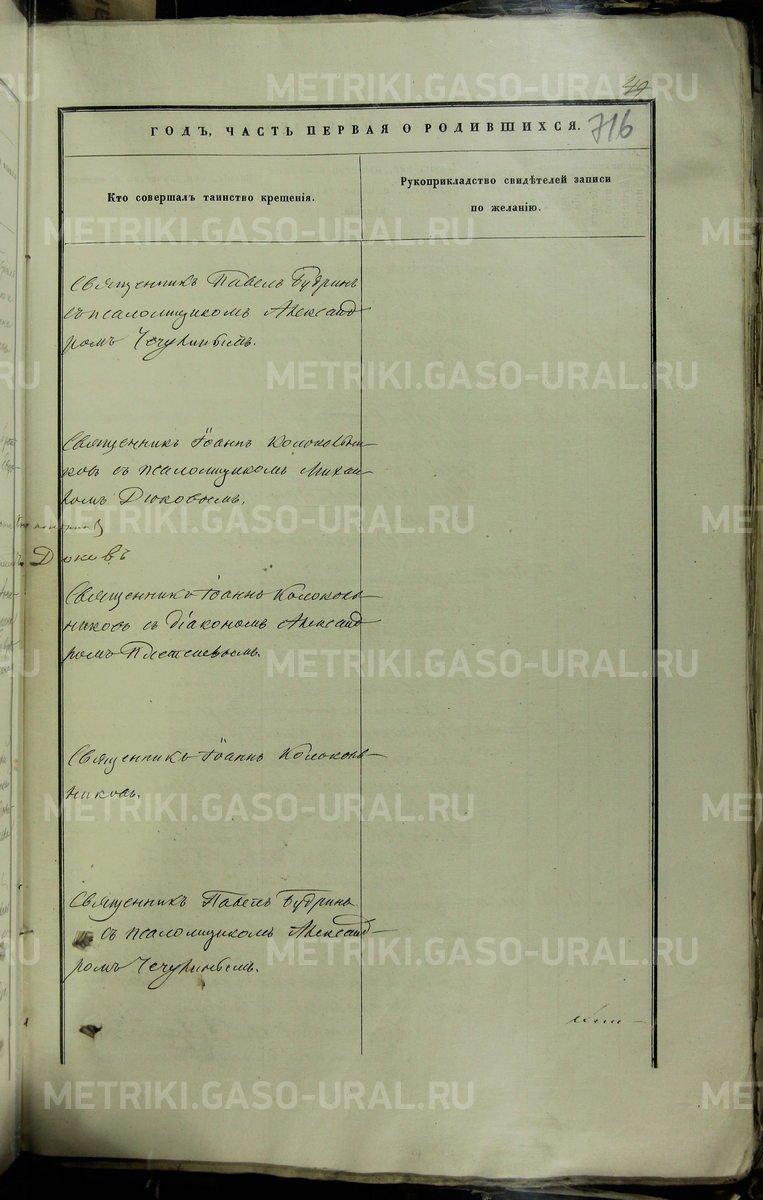 716
ГОДЪ, ЧАСТЬ ПЕРВАЯ О РОДИВШИХСЯ.
Кто совершалъ таинство крещенія.
Рукоприкладство свидѣтелей записи
по желанію.
Священникъ Павелъ Будринъ
съ псаломщикомъ Александ
ромъ Чечулинымъ.
Священникъ Іоаннъ Колокольни-
ковъ съ псаломщикомъ Михаи
ломъ Дюковымъ.
Дюковъ
Священникъ Іоаннъ Колоколь-
никовъ съ Діакономъ Александ
ромъ Плетневымъ.
Священникъ Іоаннъ Колоколь-
никовъ.
Священникъ Павелъ Будринъ
съ псаломщикомъ Александ-
ромъ Чечулинымъ.
METRIKI.GASO-URAL.RU